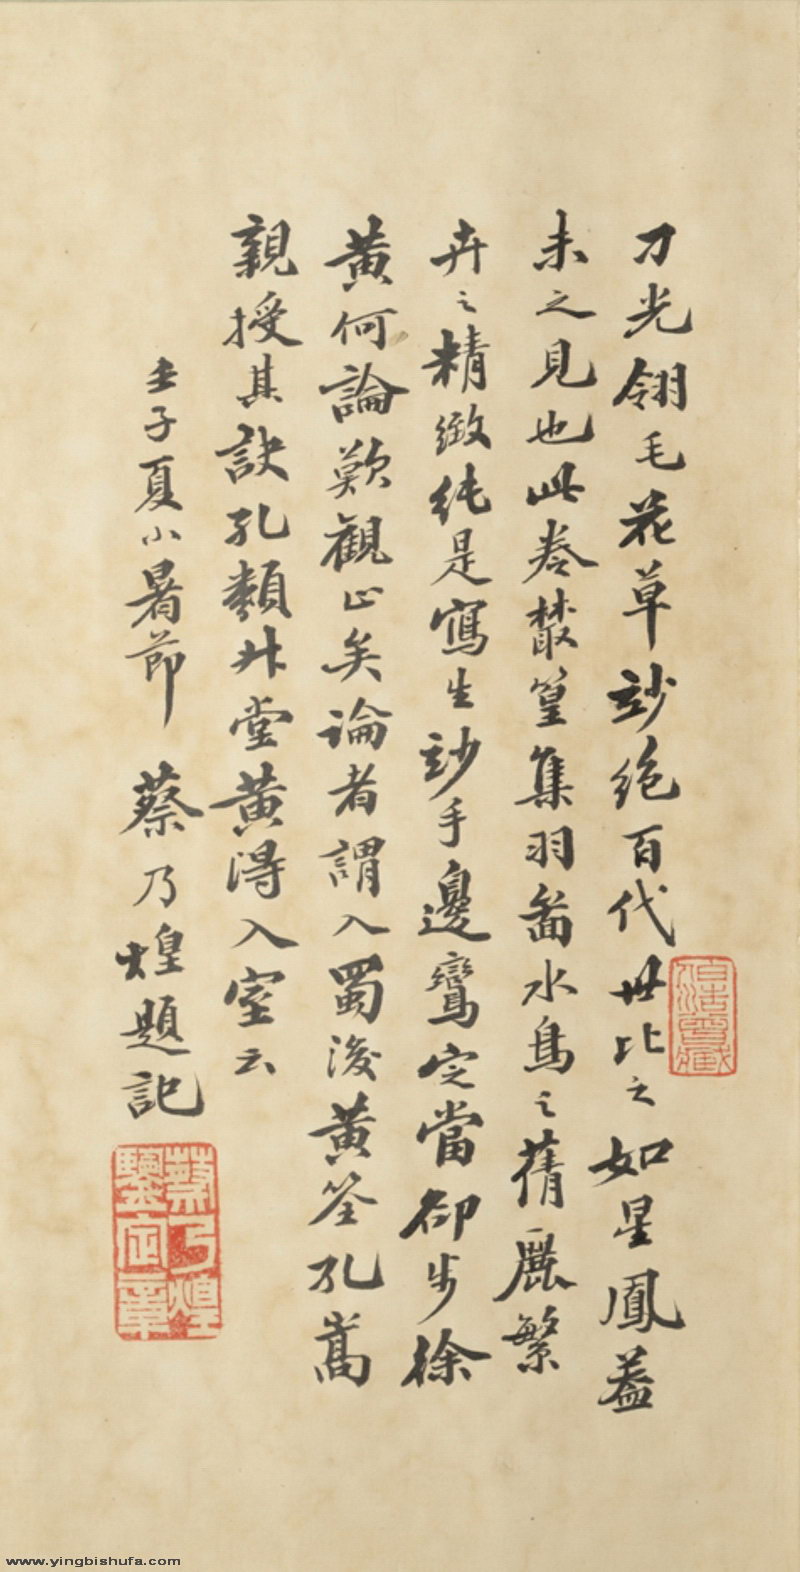 刀光翎毛花草玅絶百代世比之如星鳳蓋
未之見也此卷藂篁集羽畜水鳥之蒨麗繁
卉之精緻純是寫生玅手邊鸞定當卻步徐
黃何論歎觀止矣論者謂入蜀後黃筌孔嵩
親授其訣孔類升堂黃得入室云
壬子夏小暑節 蔡乃煌題記
蔡乃煌鑒定章
www.yingbishufa.com